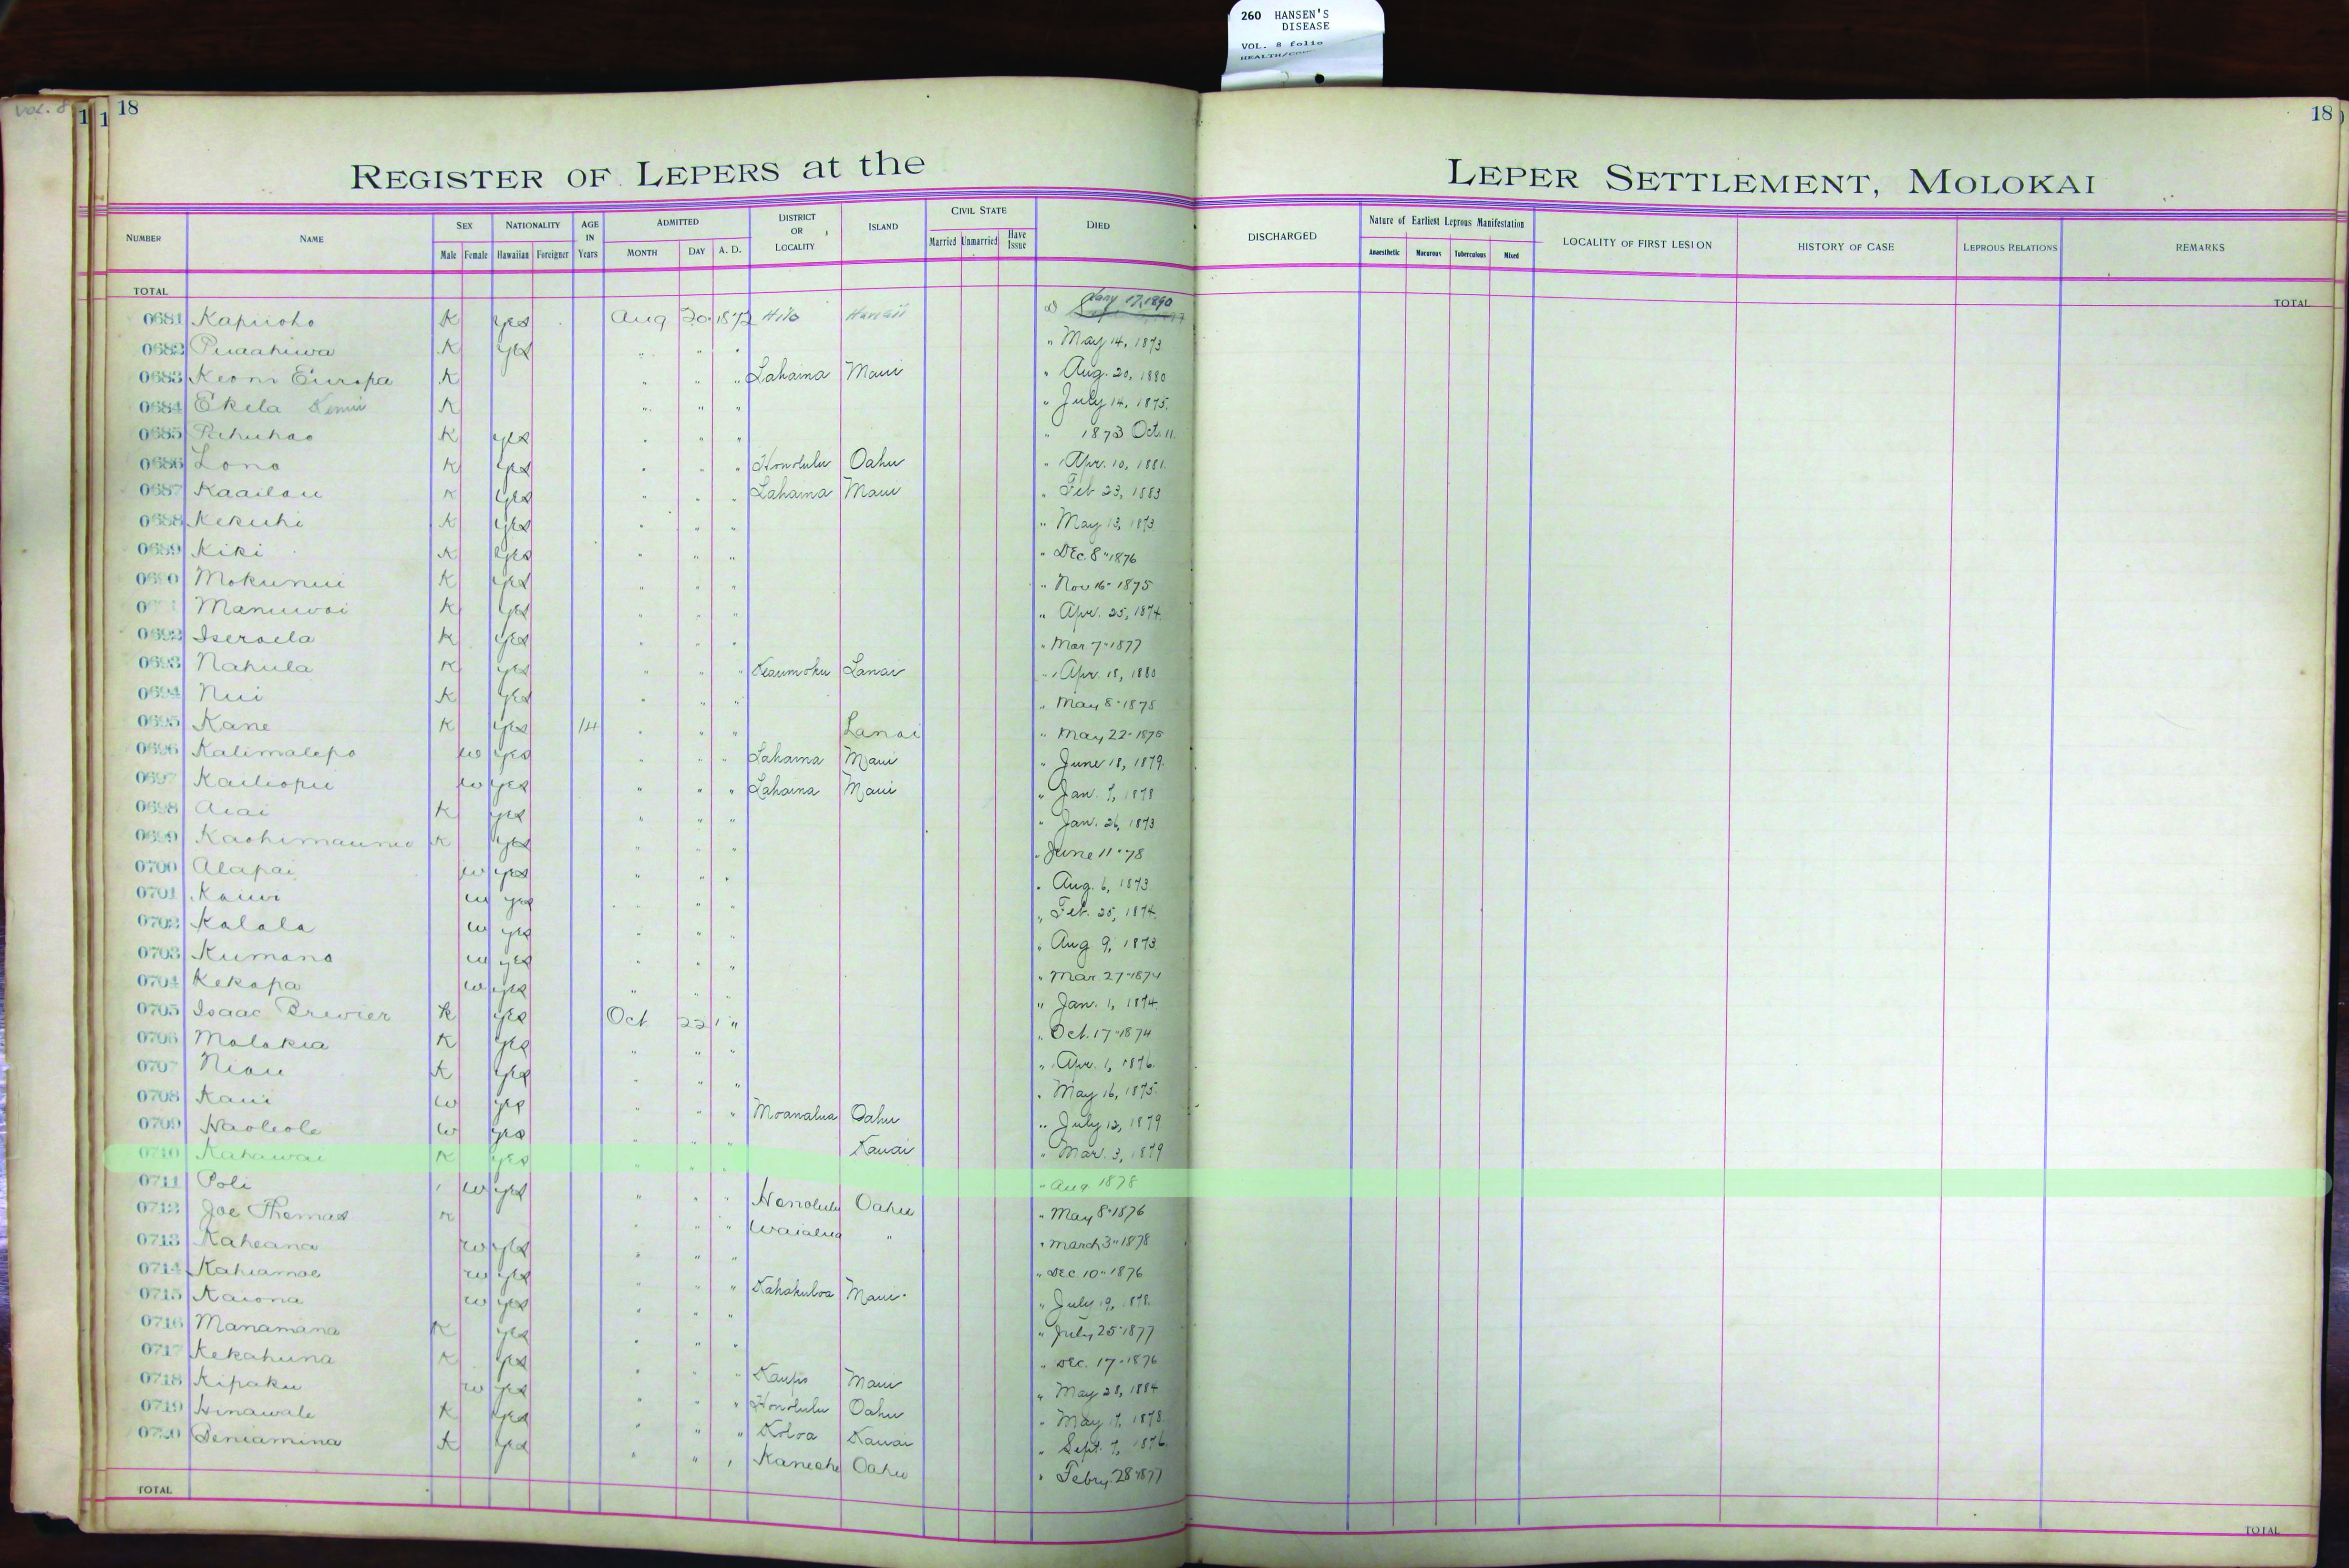 260 HANSEN'S
DISEASE
VOL. 8 folio
VOL. 8
1 1 18
18
REGISTER OF LEPERS at the LEPER SETTLEMENT, MOLOKAI
NUMBER NAME SEX Male Female NATIONALITY Hawaiian Foreigner AGE IN Years ADMITTED MONTH DAY A. D. DISTRICT OR LOCALITY ISLAND CIVIL STATE Married Unmarried Have Issue DIED DISCHARGED Nature of Earliest Leprous Manifestation Anaesthetic Macurous Tuberculous Mixed LOCALITY OF FIRST LESION HISTORY OF CASE LEPROUS RELATIONS REMARKS
TOTAL TOTAL
0681 Kapiioho K yes Aug 20 1872 Hilo Hawaii Jany 17, 1890
0682 Puaahiwa K yes " " " " May 14, 1873
0683 Keoni Europa K " " " Lahaina Maui " Aug. 20, 1880
0684 Ekela K " " " " July 14, 1875.
0685 Pahuhao K yes " " " " 1873 Oct. 11.
0686 Lono K yes " " " Honolulu Oahu " Apr. 10, 1881.
0687 Kaailau K yes " " " Lahaina Maui " Feb 23, 1883
0688 Kekuhi K yes " " " " May 13, 1873
0689 Kiki K yes " " " " Dec. 8" 1876
0690 Mokunui K yes " " " " Nov 16" 1875
Manuwai K yes " " " " Apr. 25, 1874.
0692 Iseraela K yes " " " " Mar 7" 1877
0693 Nahula K yes " " " Keaumoku Lanai " Apr. 18, 1880
0694 Nui K yes " " " " May 8" 1875
0695 Kane K yes 14 " " " Lanai " May 22" 1875
0696 Kalimalepo w yes " " " Lahaina Maui " June 18, 1879.
0697 Kailiopu w yes " " " Lahaina Maui " Jan. 7, 1878
0698 Aiai K yes " " " " Jan. 26, 1873
0699 K yes " " " " June 11" 78
0700 Alapai w yes " " " " Aug. 6, 1873
0701 Kauwi w yes " " " " Feb. 25, 1874.
0702 Kalala w yes " " " " Aug 9, 1873.
0703 Kumano w yes " " " " Mar 27" 1874
0704 Kekapa w yes " " " " Jan. 1, 1874.
0705 Isaac Brewier K yes Oct 22 " " Oct. 17" 1874
0706 Molokia K yes " " " " Apr. 1, 1876.
0707 Niau K yes " " " " May 16, 1875.
0708 Kaui w yes " " " Moanalua Oahu " July 12, 1879
0709 Haoleole w yes " " " Kauai " Mar. 3, 1879
0710 Kahawai K yes " " " " Aug 1878
0711 Poli w yes " " " Honolulu Oahu " May 8" 1876
0712 Joe Thomas K " " " Waialua " " March 3" 1878
0713 Kaheana w yes " " " " Dec. 10" 1876
0714 Kahiamoe w yes " " " Kahakuloa Maui " July 19, 1878.
0715 Kaiona w yes " " " " July 25" 1877
0716 Manamana K yes " " " " Dec. 17" 1876
0717 Kekahuna K yes " " " Kaupo Maui " May 28, 1884
0718 Kipaku w yes " " " Honolulu Oahu " May 17, 1878.
0719 Hinawale K yes " " " Koloa Kauai " Sept. 7, 1876
0720 Beniamina K yes " " " Kaneohe Oahu " Febry. 28" 1877
TOTAL TOTAL